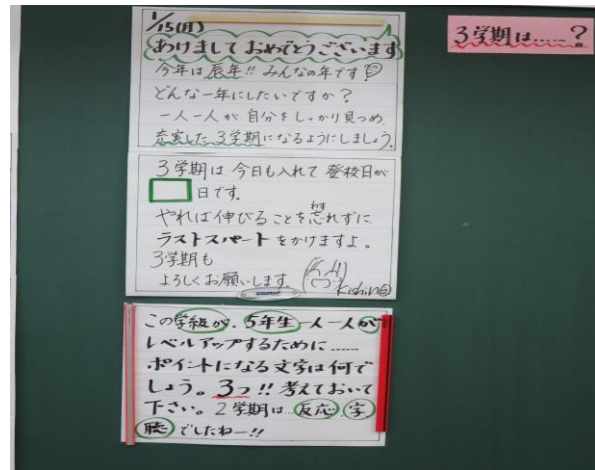 1/15(月)
あけまして おめでとうございます
今年は辰年!! みんなの年です
どんな一年にしたいですか？
一人一人が 自分をしっかり見つめ
充実した 3学期になるようにしましょう。
3学期は 今日も入れて 登校日が
日です。
やれば伸びることを忘れずに
わす
ラストスパートをかけますよ。
3学期も
よろしくお願いします。
この学級が、5年生一人一人が
レベルアップするために……
ポイントになる文字は何で
しょう。3つ!! 考えておいて
下さい。2学期は…反応 字
聴でしたねー!!
3学期は……？